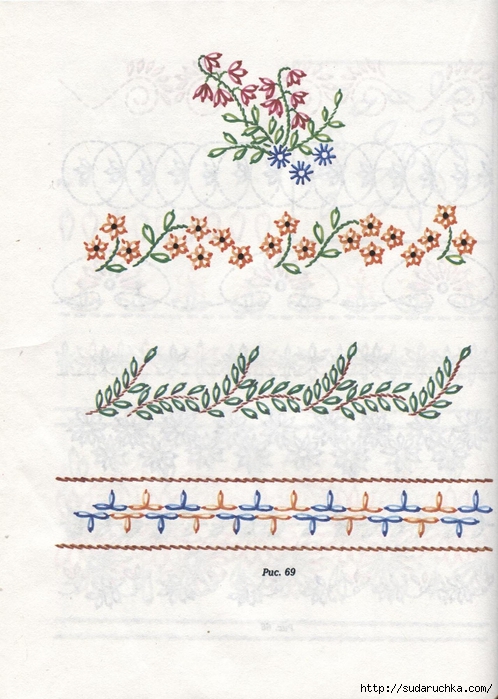 Рис. 69
http://sudaruchka.com/